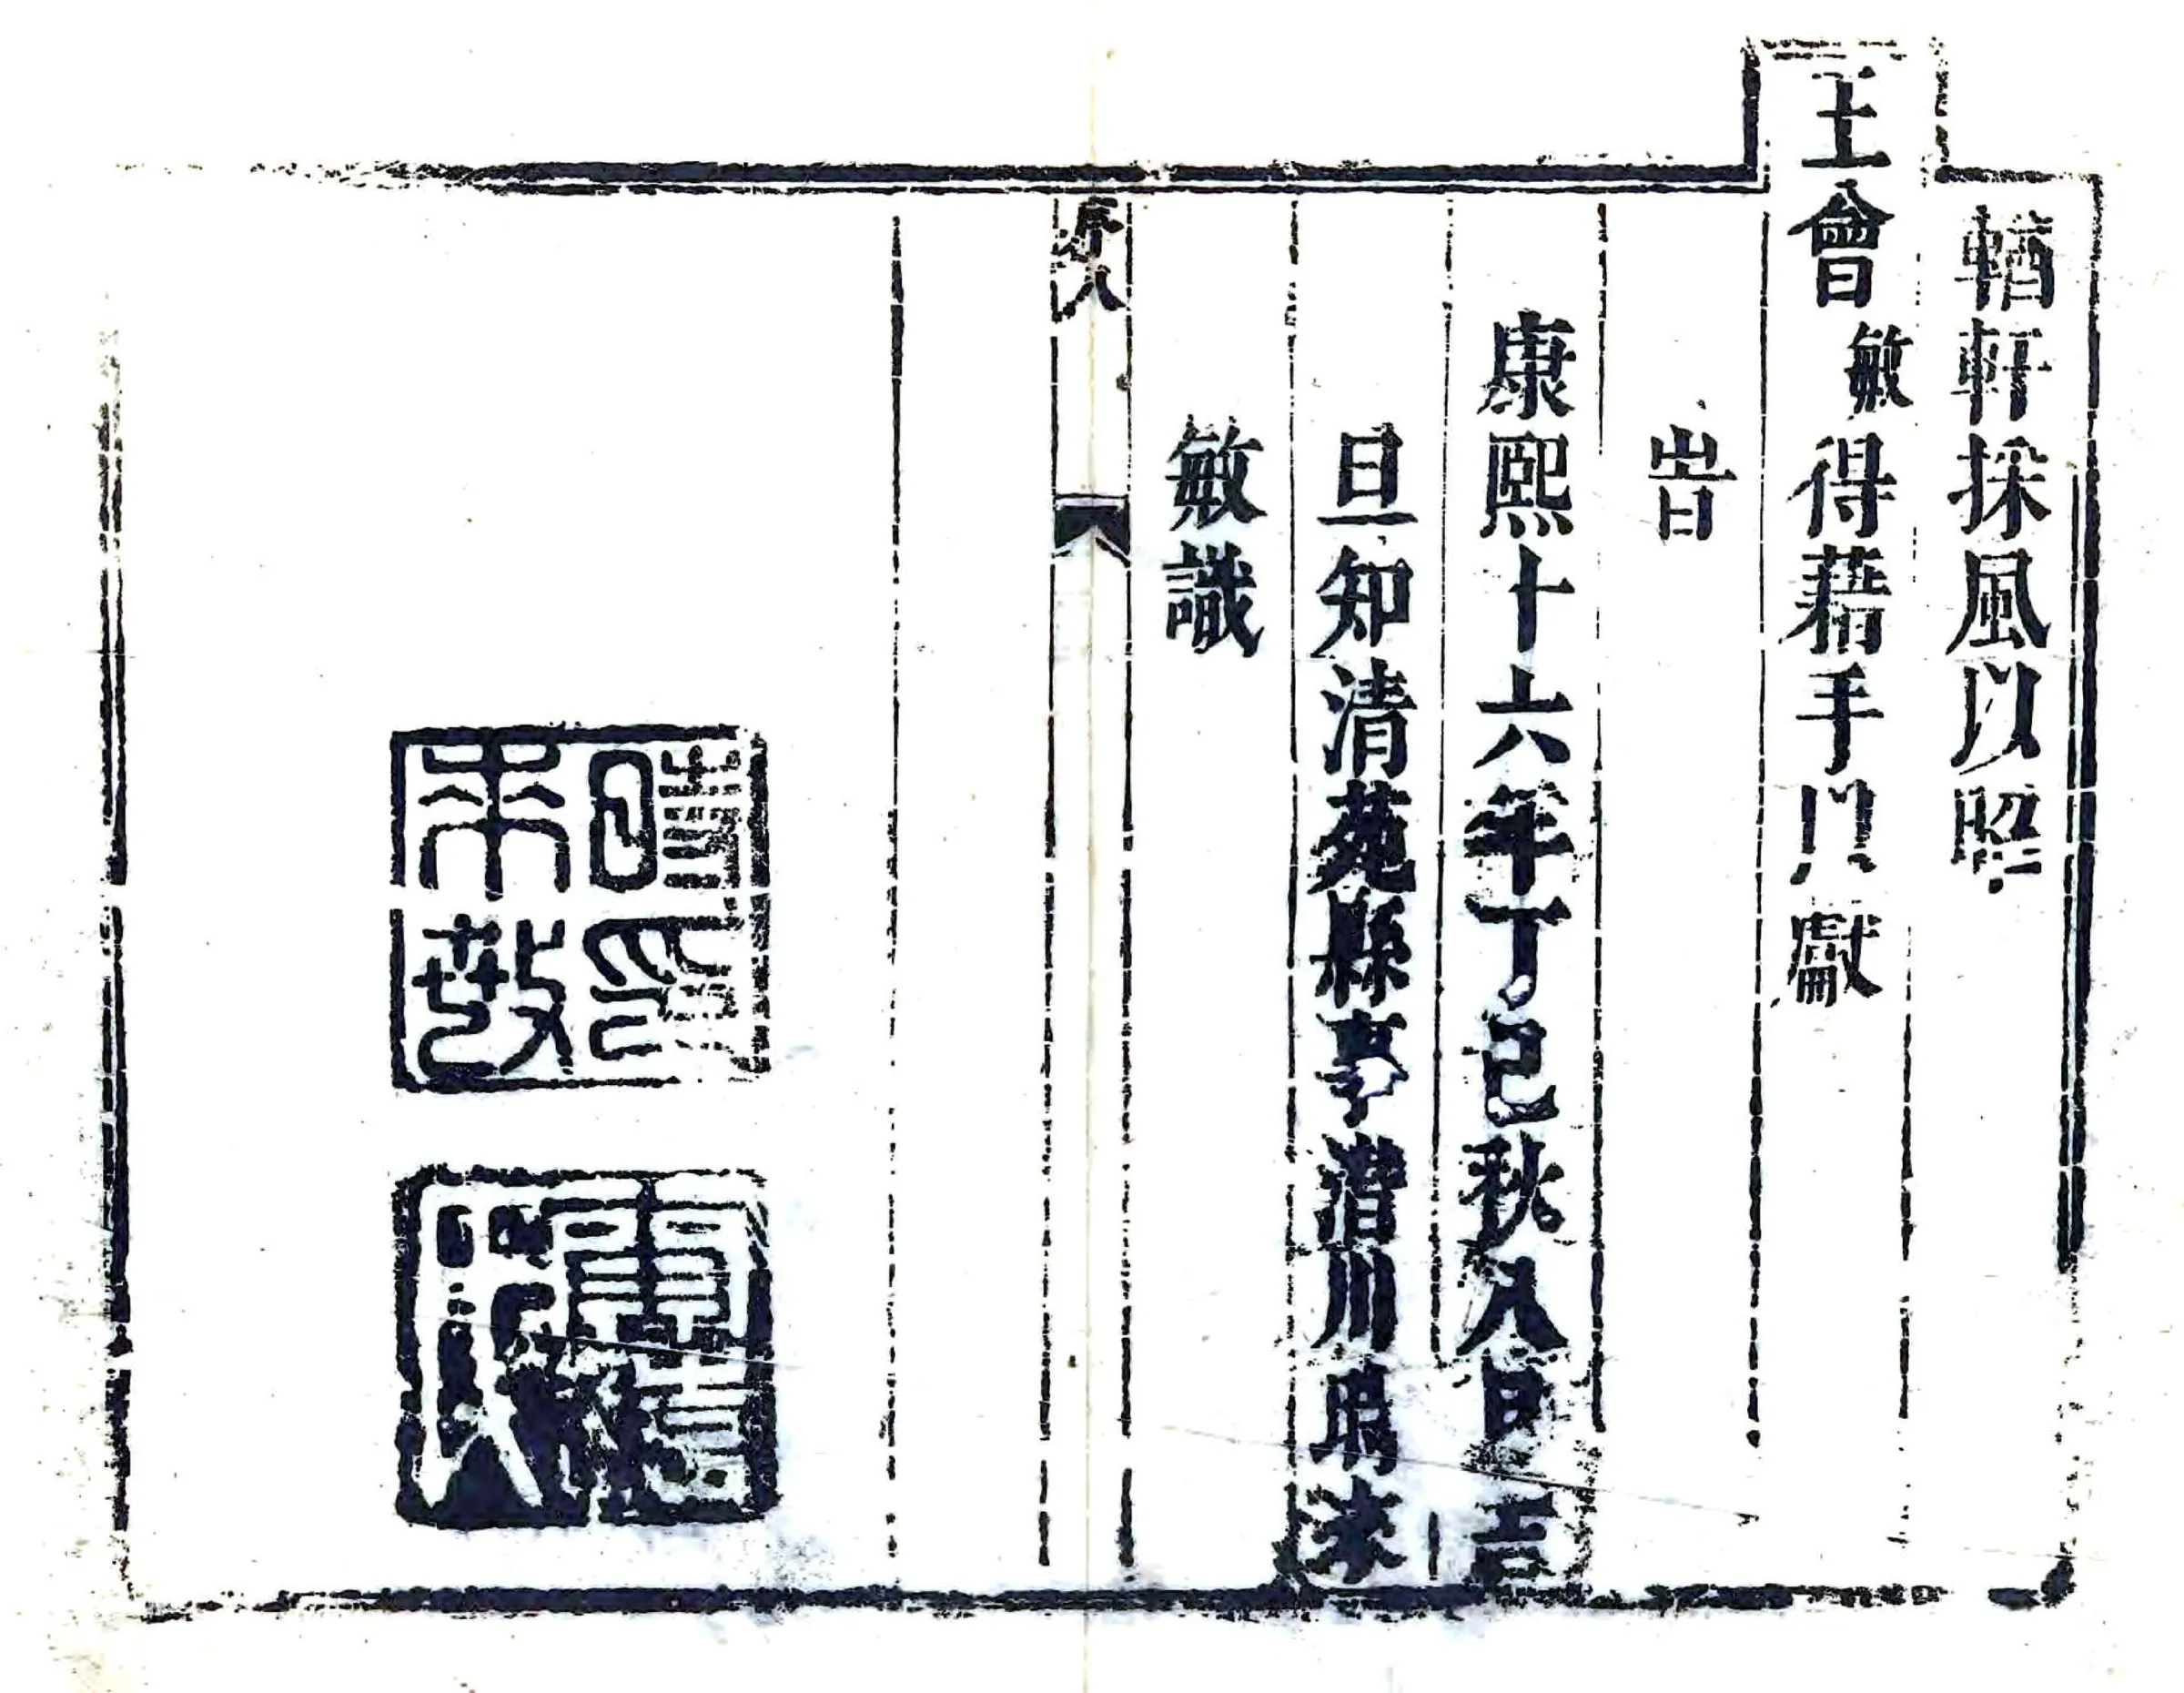 輶軒採風以照
王會敏得藉手以獻
旹
康熙十六年丁巳秋八月吉
旦知清苑縣事潛川時來
敏識
序 八
時來敏印